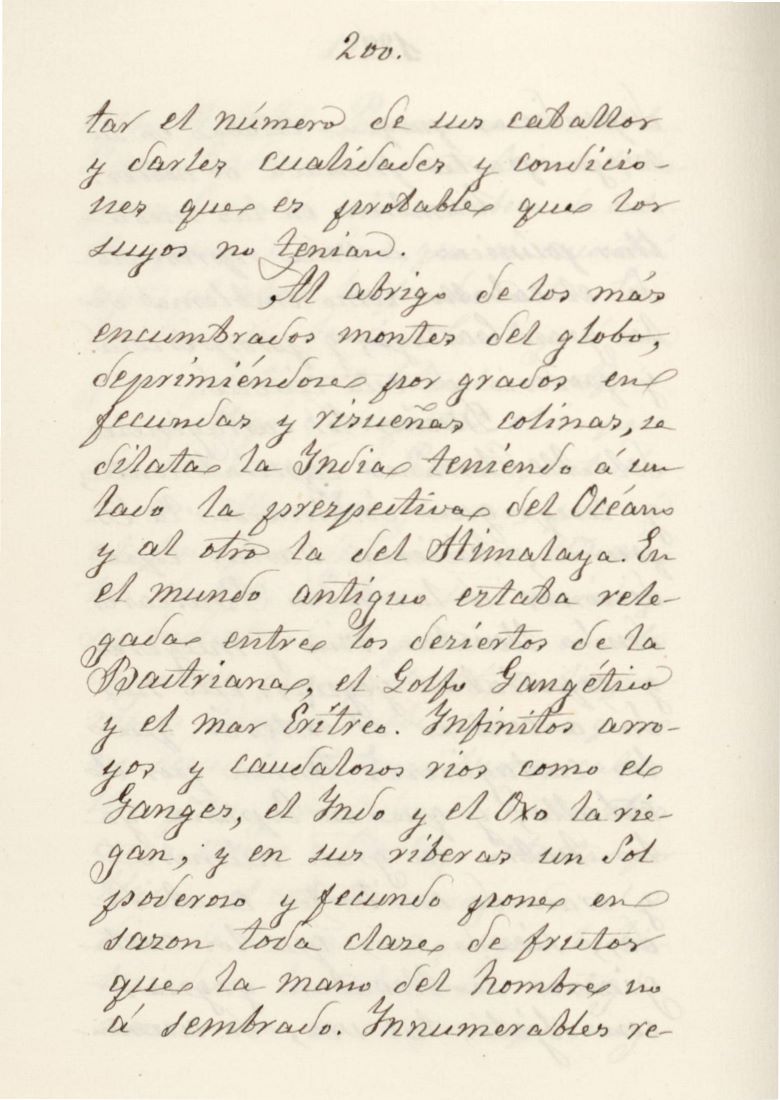 200.
tar el número de sus caballos
y darles cualidades y condicio-
nes que es probable que los
suyos no tenian.
Al abrigo de los más
encumbrados montes del globo,
deprimiéndose por grados en
fecundas y risueñas colinas, se
dilata la India teniendo á un
lado la prespectiva del Océano
y al otro la del Himalaya. En
el mundo antiguo estaba rele-
gada entre los desiertos de la
Bactriana, el Golfo Gangético
y el mar Eritreo. Infinitos arro-
yos y caudalosos rios como el
Ganges, el Indo y el Oxo la rie-
gan, y en sus riberas un Sol
poderoso y fecundo pone en
sazon toda clase de frutos
que la mano del hombre no
á sembrado. Innumerables re-